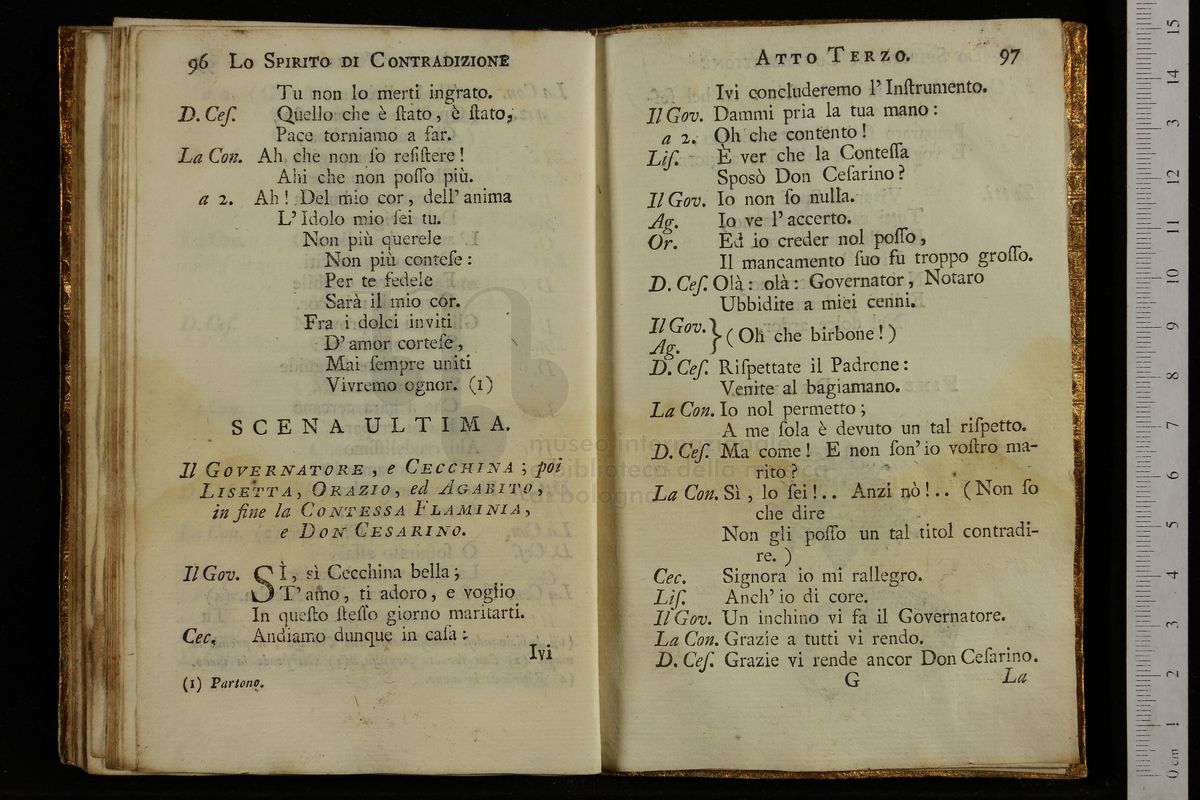 96 Lo Spirito di Contradizione
Tu non lo merti ingrato.
D. Ceſ. Quello che è ſtato, è ſtato,
Pace torniamo a far.
La Con. Ah che non ſo reſiſtere!
Ahi che non poſſo più.
a 2. Ah! Del mio cor, dell' anima
L' Idolo mio ſei tu.
Non più querele
Non più conteſe:
Per te fedele
Sarà il mio cor.
Fra i dolci inviti
D' amor corteſe,
Mai ſempre uniti
Vivremo ognor. (1)
SCENA ULTIMA.
Il Governatore, e Cecchina; poi
Lisetta, Orazio, ed Agabito,
in fine la Contessa Flaminia,
e Don Cesarino.
Il Gov. SÌ, sì Cecchina bella;
T' amo, ti adoro, e voglio
In queſto ſteſſo giorno maritarti.
Cec. Andiamo dunque in caſa:
Ivi
(1) Partono.
Atto Terzo. 97
Ivi concluderemo l' Inſtrumento.
Il Gov. Dammi pria la tua mano:
a 2. Oh che contento!
Liſ. È ver che la Conteſſa
Sposò Don Ceſarino?
Il Gov. Io non ſo nulla.
Ag. Io ve l' accerto.
Or. Ed io creder nol poſſo,
Il mancamento ſuo fu troppo groſſo.
D. Ceſ. Olà: olà: Governator, Notaro
Ubbidite a miei cenni.
Il Gov. } (Oh che birbone!)
Ag.
D. Ceſ. Riſpettate il Padrone:
Venite al bagiamano.
La Con. Io nol permetto;
A me ſola è devuto un tal riſpetto.
D. Ceſ. Ma come! E non ſon' io voſtro ma-
rito?
La Con. Sì, lo ſei!.. Anzi nò!.. (Non ſo
che dire
Non gli poſſo un tal titol contradi-
re.)
Cec. Signora io mi rallegro.
Liſ. Anch' io di core.
Il Gov. Un inchino vi fa il Governatore.
La Con. Grazie a tutti vi rendo.
D. Ceſ. Grazie vi rende ancor Don Ceſarino.
G La
museo internazionale
e biblioteca della musica
di bologna
15
14
13
12
11
10
9
8
7
6
5
4
3
2
1
0 cm